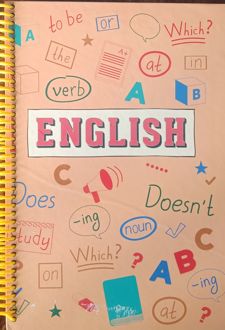 to be or Which?
A
the A+ at in
verb A B
ENGLISH
C
Does Doesn't
-ing C
study noun ?
on Which? ? A B
-ing
? at ?